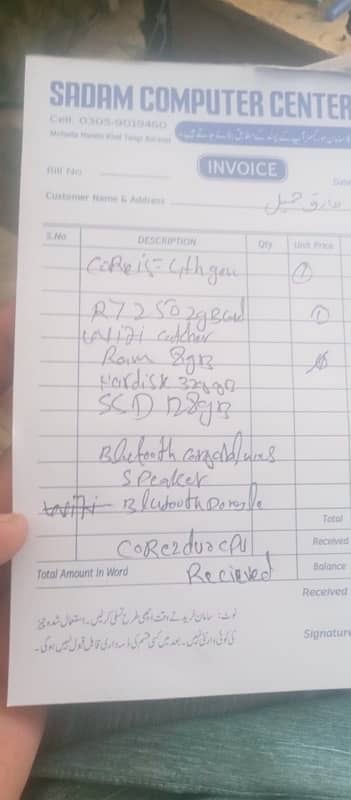 SADAM COMPUTER CENTER
Cell: 0305-9019460
INVOICE
Bill No
Customer Name & Address
S.No DESCRIPTION Qty Unit Price
CoRe i5 = 4th gen 1
R7 250 2gB Card 1
Wifi catcher
Ram 8gB
Hardisk 320gB
SSD 128gB
Bluetooth
Speaker
Wifi - Bluetooth Dongle
Total
CoRe2duo CPU Received
Total Amount In Word Recieved Balance
Received
نوٹ: سامان خریدتے وقت اچھی طرح تسلی کرلیں۔ استعمال شدہ چیز
کی کوئی وارنٹی نہیں۔ بعد میں کسی قسم کی ذمہ داری قابل قبول نہیں ہوگی۔
Signature